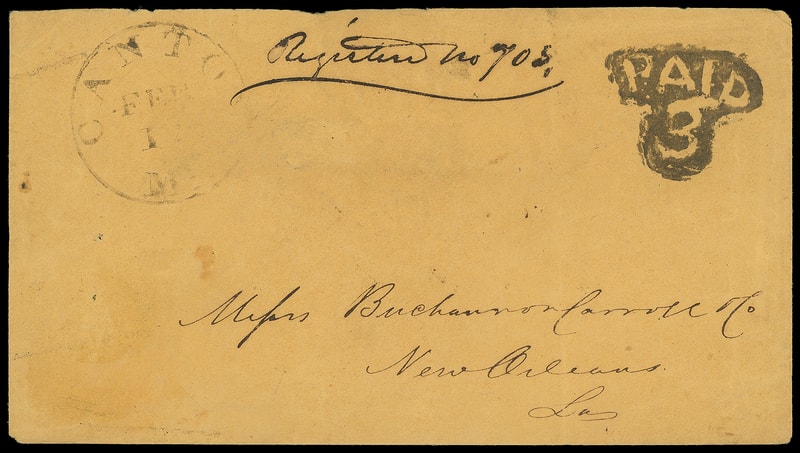 CANTO
FEB
1
M
Registered No 703.
PAID
3
Messrs Buchannon Carroll & Co
New Orleans
La